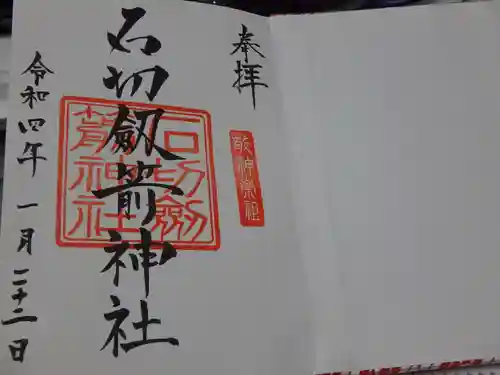 奉拝
敬神崇祖
石切劔箭神社
石切劍
箭神社
令和四年 一月 二十二日